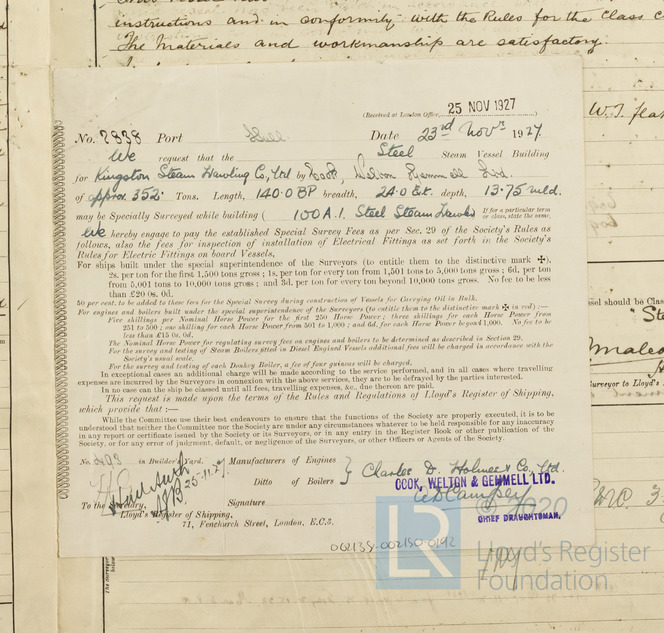 instructions and in conformity with the Rules for the Class
The Materials and workmanship are satisfactory.
(Received at London Office, 25 NOV 1927
No. 2838 Port Hull Date 23rd Novr 1927.
We request that the Steel Steam Vessel Building
for Kingston Steam Trawling Co, Ltd by Cook, Welton Gemmell Ltd.
of approx 352 Tons. Length, 140.0 BP breadth, 24.0 Ext. depth, 13.75 mld.
may be Specially Surveyed while building ( 100 A.1. Steel Steam Trawler If for a particular term
or class, state the same.
We hereby engage to pay the established Special Survey Fees as per Sec. 29 of the Society's Rules as
follows, also the fees for inspection of installation of Electrical Fittings as set forth in the Society's
Rules for Electric Fittings on board Vessels.
For ships built under the special superintendence of the Surveyors (to entitle them to the distinctive mark ✠),
2s. per ton for the first 1,500 tons gross; 1s. per ton for every ton from 1,501 to 5,000 tons gross; 6d. per ton
from 5,001 to 10,000 tons gross; and 3d. per ton for every ton beyond 10,000 tons gross. No fee to be less
than £20 0s. 0d.
50 per cent. to be added to these fees for the Special Survey during construction of Vessels for Carrying Oil in Bulk.
For engines and boilers built under the special superintendence of the Surveyors (to entitle them to the distinctive mark ✠ in red) :—
Five shillings per Nominal Horse Power for the first 250 Horse Power; three shillings for each Horse Power from
251 to 500; one shilling for each Horse Power from 501 to 1,000; and 6d. for each Horse Power beyond 1,000. No fee to be
less than £15 0s. 0d.
The Nominal Horse Power for regulating survey fees on engines and boilers to be determined as described in Section 29.
For the survey and testing of Steam Boilers fitted in Diesel Engined Vessels additional fees will be charged in accordance with the
Society's usual scale.
For the survey and testing of each Donkey Boiler, a fee of four guineas will be charged.
In exceptional cases an additional charge will be made according to the service performed, and in all cases where travelling
expenses are incurred by the Surveyors in connexion with the above services, they are to be defrayed by the parties interested.
In no case can the ship be classed until all fees, travelling expenses, &c., due thereon are paid.
This request is made upon the terms of the Rules and Regulations of Lloyd's Register of Shipping,
which provide that :—
While the Committee use their best endeavours to ensure that the functions of the Society are properly executed, it is to be
understood that neither the Committee nor the Society are under any circumstances whatever to be held responsible for any inaccuracy
in any report or certificate issued by the Society or its Surveyors, or in any entry in the Register Book or other publication of the
Society, or for any error of judgment, default, or negligence of the Surveyors, or other Officers or Agents of the Society.
No. in Builder's Yard. Manufacturers of Engines
Ditto of Boilers } Charles D. Holmes & Co, Ltd.
COOK, WELTON & GEMMELL LTD.
25.11.27
To the Secretary, Signature
CHIEF DRAUGHTSMAN.
Lloyd's Register of Shipping,
71, Fenchurch Street, London, E.C.3.
002138-002150-0192
W.T.
sel should be Class
"St
Surveyor to Lloyd's
© 2020
LR
Lloyd's Register
Foundation